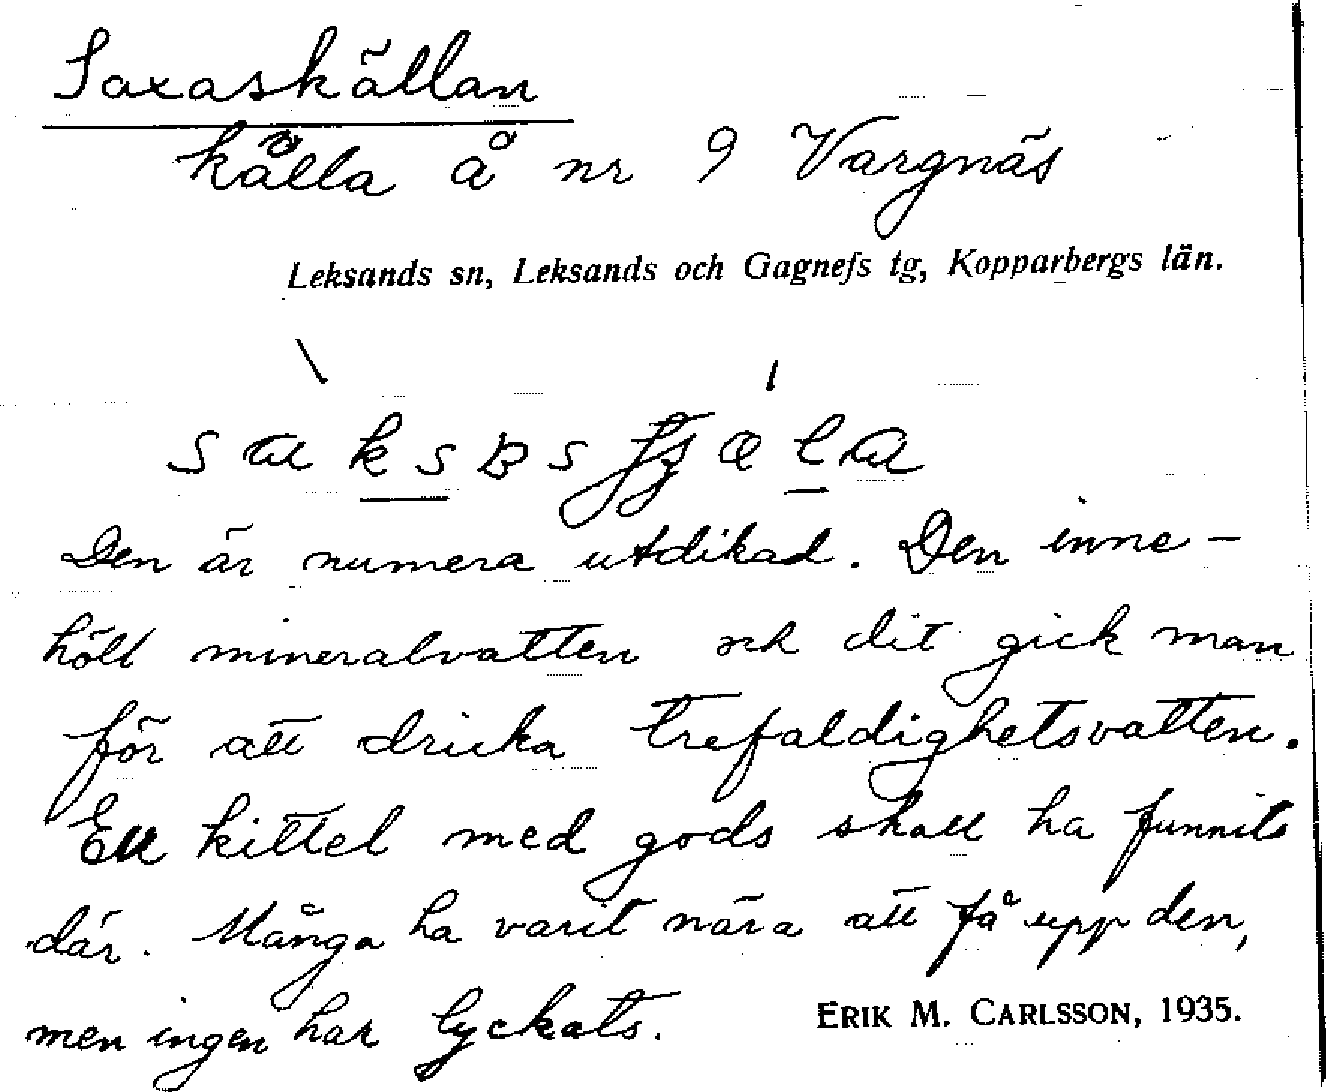 Saxaskällan
källa å nr 9 Vargnäs
Leksands sn, Leksands och Gagnefs tg, Kopparbergs län.
Den är numera utdikad. Den inne-
höll mineralvatten och dit gick man
för att dricka trefaldighetsvatten.
En kittel med gods skall ha funnits
där. Många ha varit nära att få upp den,
men ingen har lyckats.
ERIK M. CARLSSON, 1935.